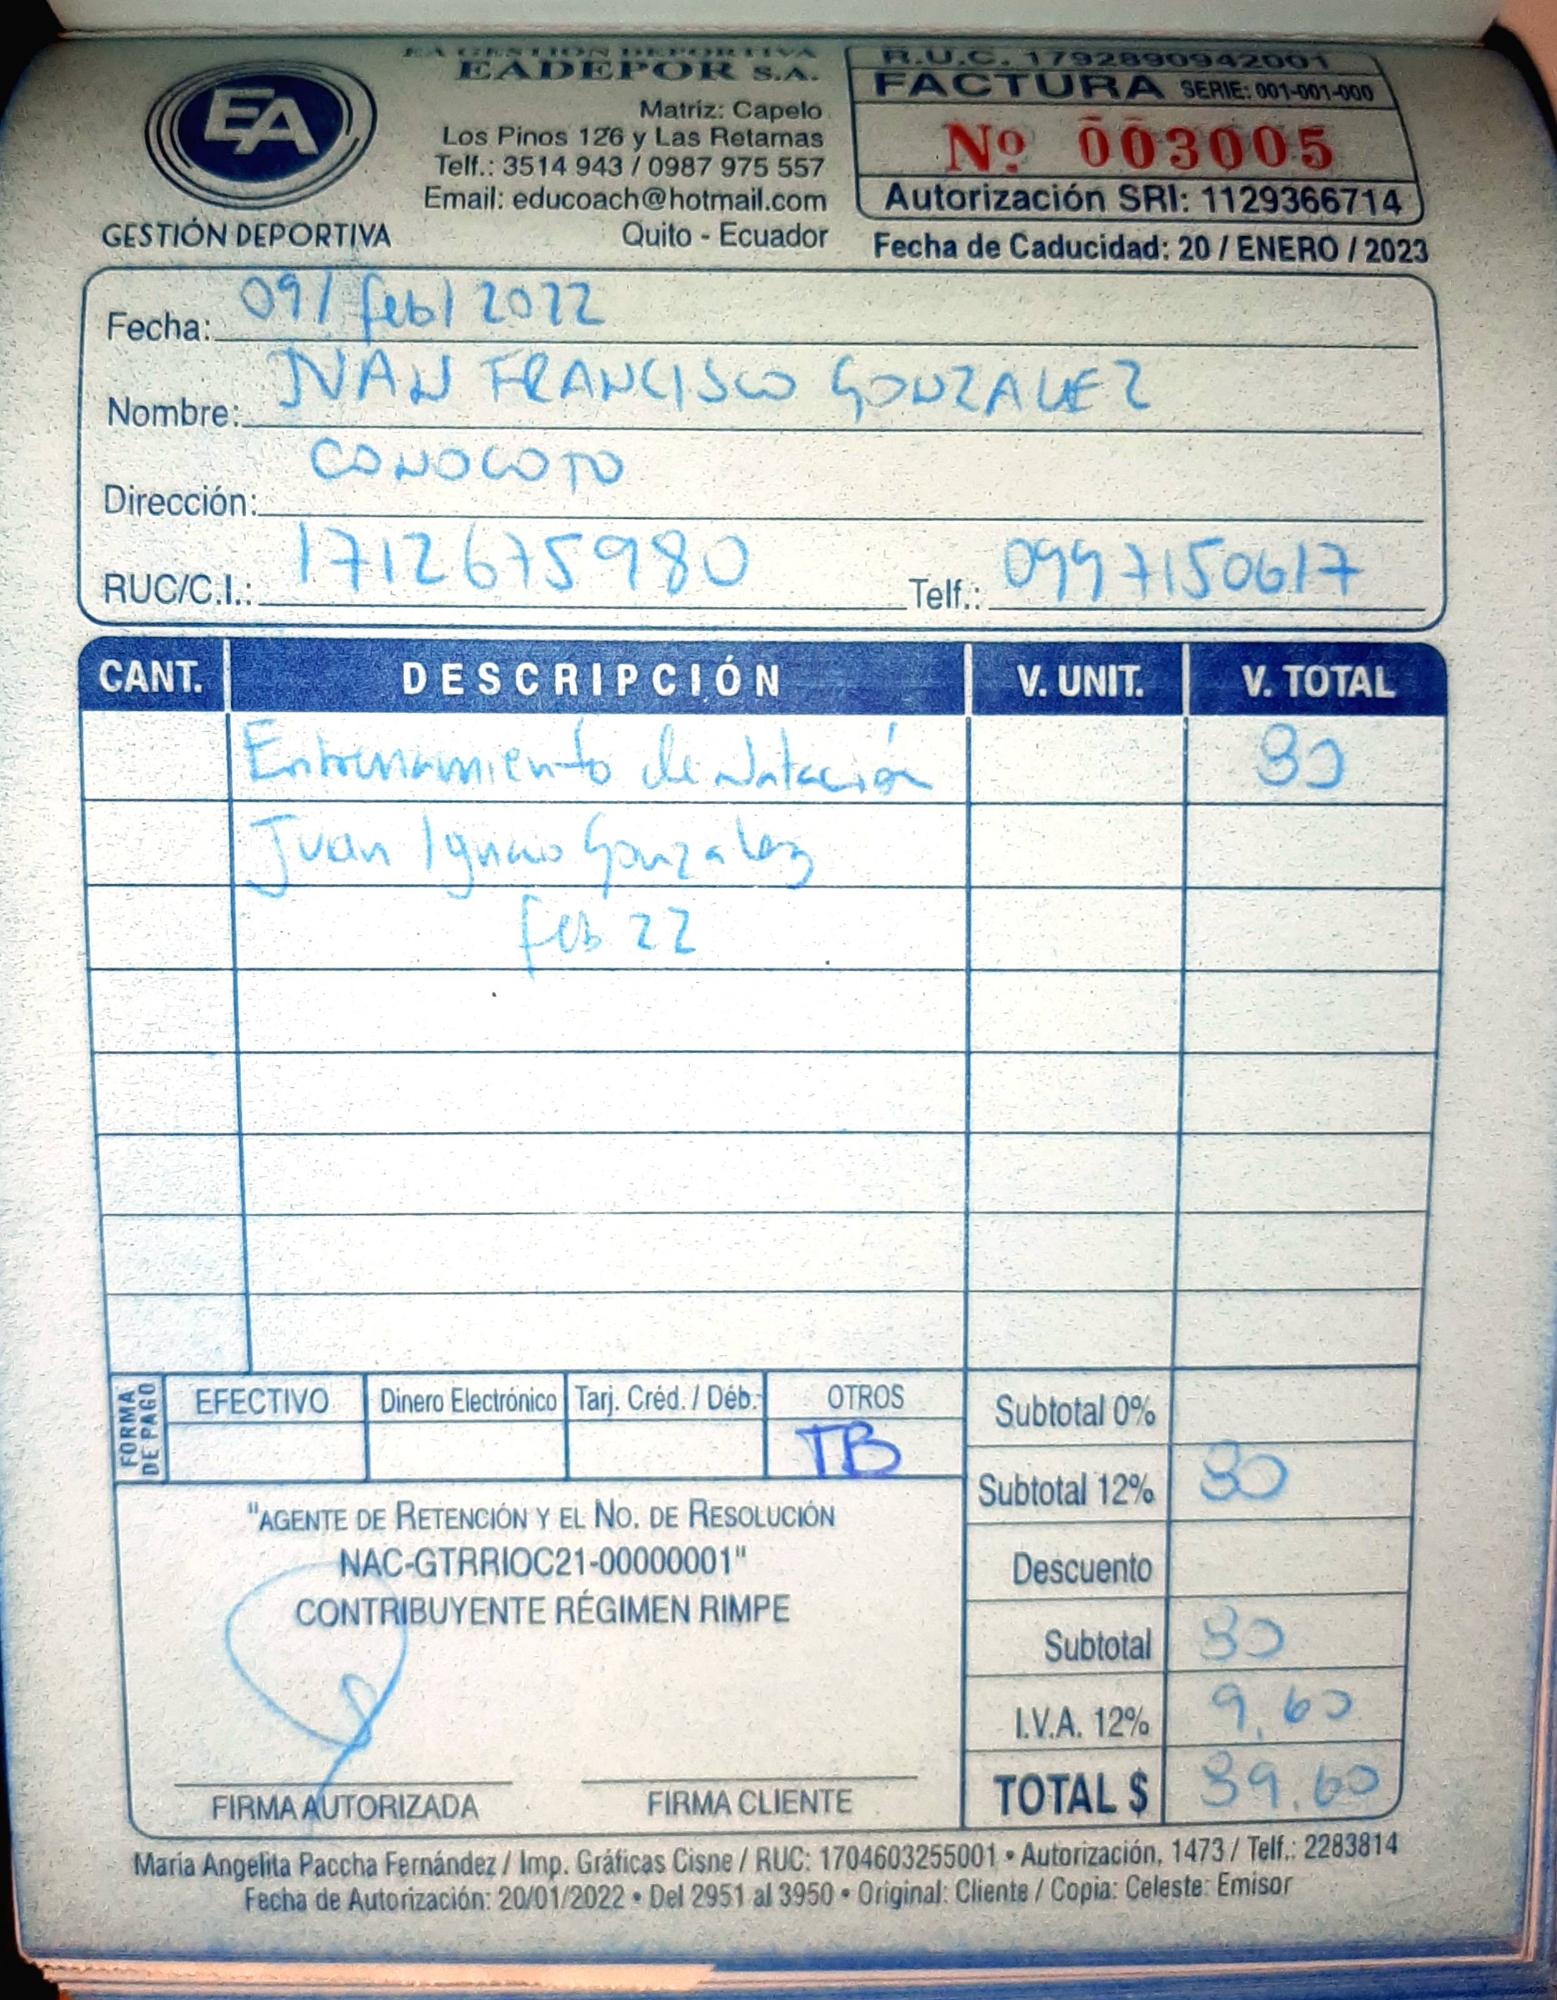 EA GESTIÓN DEPORTIVA
EADEPOR S.A.
EA
GESTIÓN DEPORTIVA
Matriz: Capelo
Los Pinos 126 y Las Retamas
Telf.: 3514 943 / 0987 975 557
Email: educoach@hotmail.com
Quito - Ecuador
R.U.C. 1792890942001
FACTURA SERIE: 001-001-000
Nº 003005
Autorización SRI: 1129366714
Fecha de Caducidad: 20 / ENERO / 2023
Fecha: 09/feb/2022
Nombre: JUAN FRANCISCO GONZALEZ
Dirección: CONOCOTO
RUC/C.I.: 1712675980 Telf.: 0997150617
CANT. DESCRIPCIÓN V. UNIT. V. TOTAL
Entrenamiento de Natación 80
Juan Ignacio Gonzalez
feb 22
FORMA DE PAGO
EFECTIVO Dinero Electrónico Tarj. Créd. / Déb. OTROS
TB
Subtotal 0%
Subtotal 12% 80
Descuento
Subtotal 80
I.V.A. 12% 9.60
TOTAL $ 89.60
"AGENTE DE RETENCIÓN Y EL NO. DE RESOLUCIÓN
NAC-GTRRIOC21-00000001"
CONTRIBUYENTE RÉGIMEN RIMPE
FIRMA AUTORIZADA FIRMA CLIENTE
María Angelita Paccha Fernández / Imp. Gráficas Cisne / RUC: 1704603255001 • Autorización, 1473 / Telf.: 2283814
Fecha de Autorización: 20/01/2022 • Del 2951 al 3950 • Original: Cliente / Copia: Celeste: Emisor